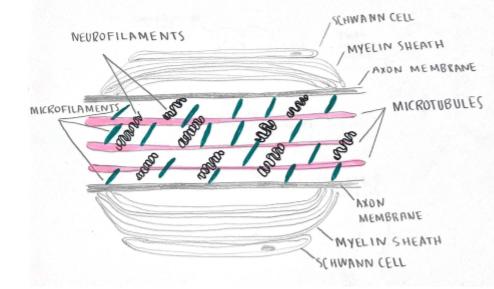 SCHWANN CELL
NEUROFILAMENTS
MYELIN SHEATH
AXON MEMBRANE
MICROFILAMENTS
MICROTUBULES
AXON
MEMBRANE
MYELIN SHEATH
SCHWANN CELL